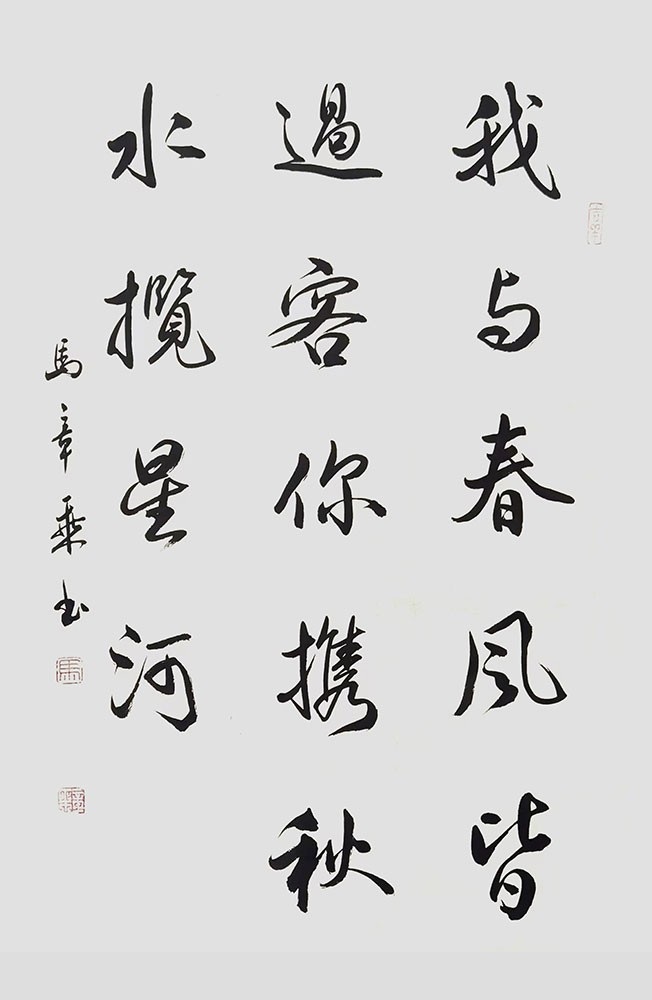 我与春风皆
過客你携秋
水攬星河
馬章乘书